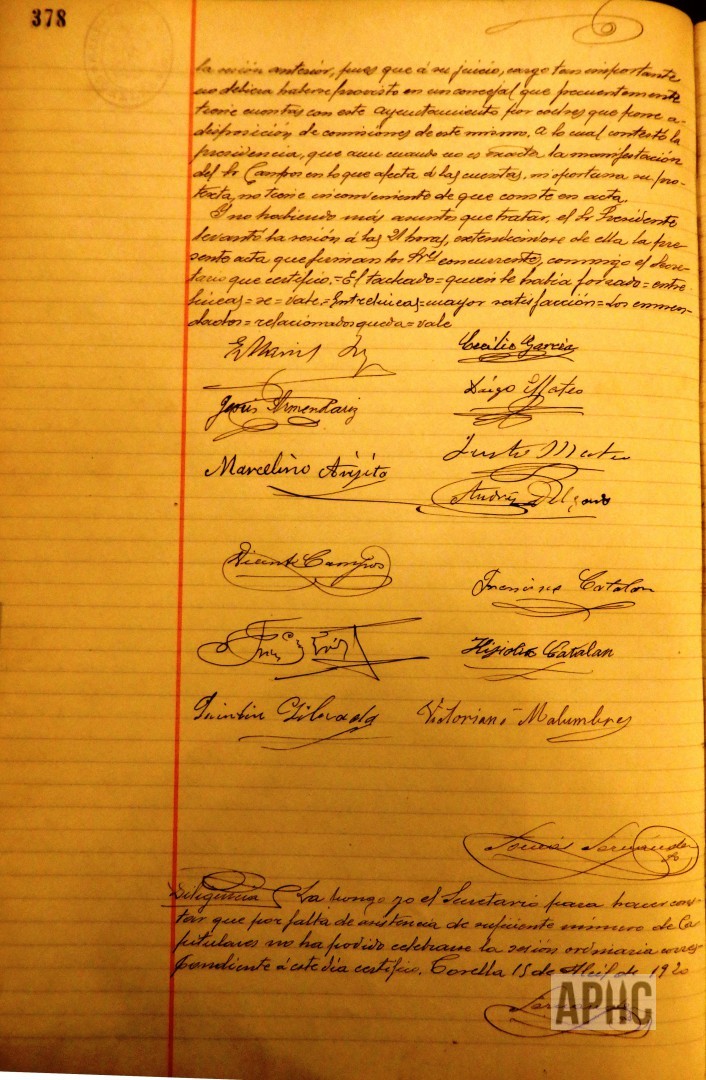 378
la sesión anterior, pues que á su juicio, cargo tan importante
no debiera haberse provisto en un concejal que frecuentemente
tiene cuentas con este Ayuntamiento por coches que pone a
disposición de comisiones de este mismo. A lo cual contestó la
presidencia, que aun cuando no es exacta la manifestación
del Sr Campos en lo que afecta á las cuentas, ni oportuna su pro-
texta, no tiene inconveniente de que conste en acta.
Y no habiendo más asuntos que tratar, el Sr Presidente
levantó la sesión á las 21 horas, extendiéndose de ella la pre-
sente acta que firman los Sres concurrentes, conmigo el Secre-
tario que certifico.=El tachado=quien le había forzado=entre
lineas=se=vale.=Entrelineas=mayor satisfacción=Los enmen-
dados=relacionados queda=vale
Cecilio García
Jesús Armendariz
Diego Mateo
Marcelino Arijita
Justo Mateo
Andrés Delgado
Vicente Campos
Francisco Catalan
Catalan
Quintin
Victoriano Malumbres
Tomás Fernández
Diligencia La pongo yo el Secretario para hacer cons-
tar que por falta de asistencia de suficiente número de Ca-
pitulares no ha podido celebrarse la sesión ordinaria corres-
pondiente á este día certifico. Corella 15 de Abril de 1920
Fernández
APHC